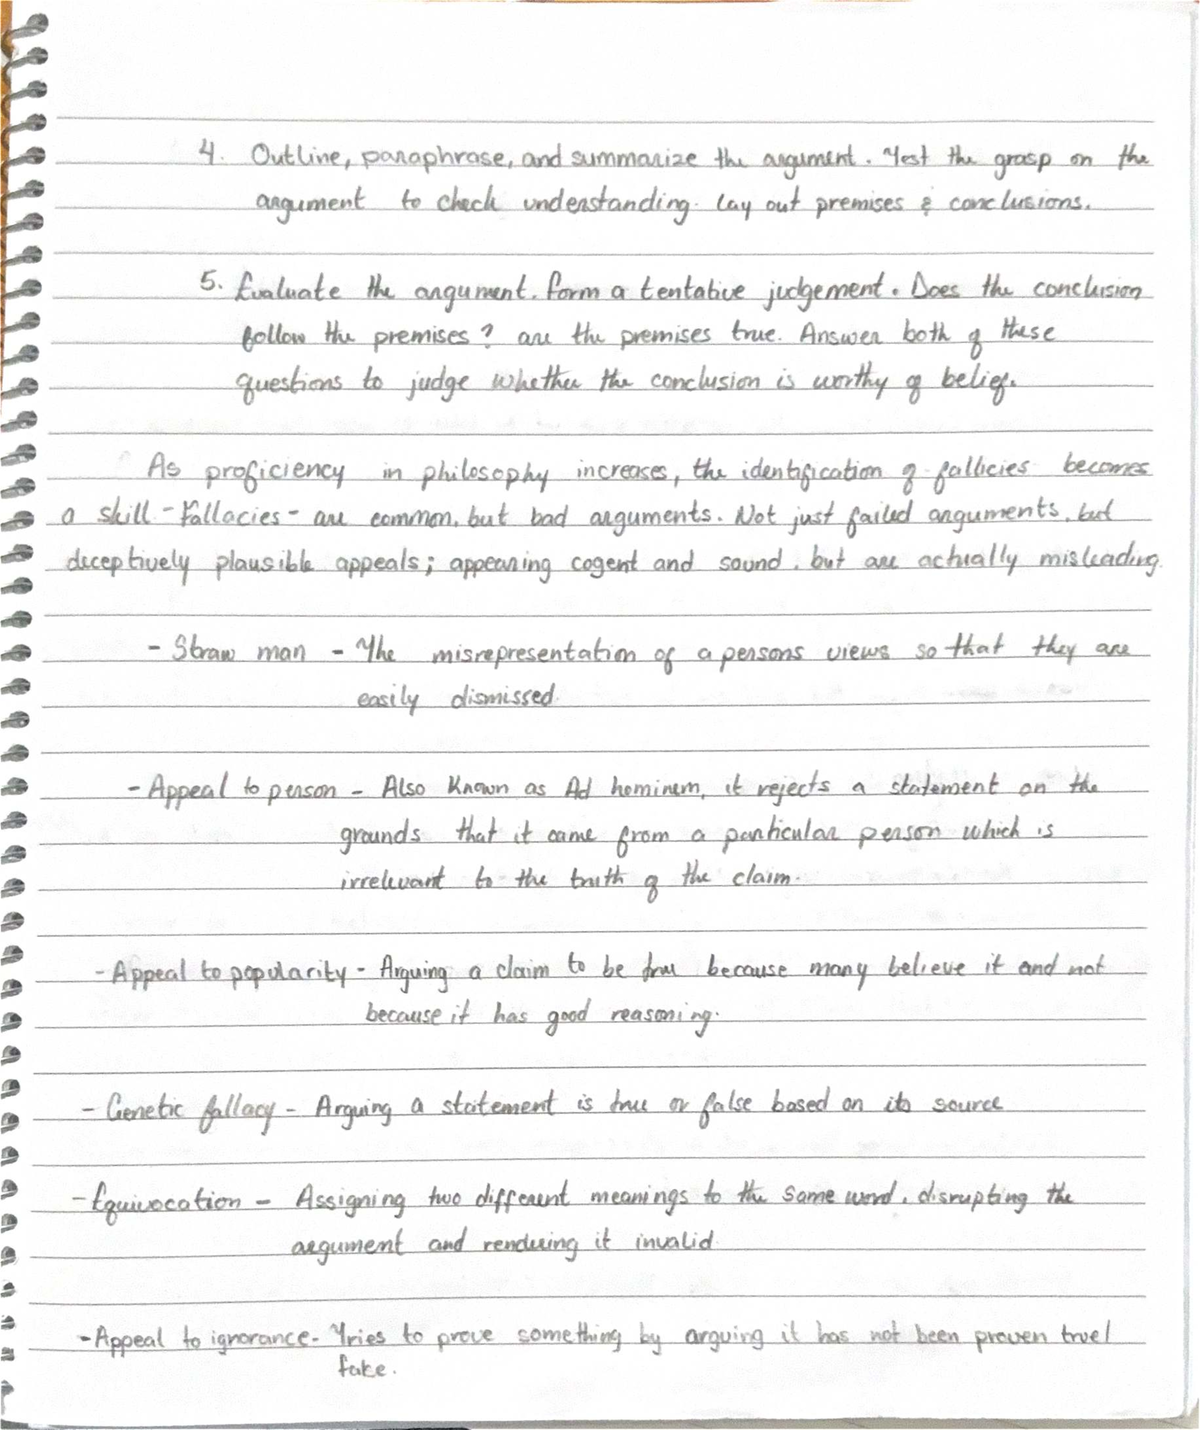 4. Outline, paraphrase, and summarize the argument. Test the grasp on the
argument to check understanding. Lay out premises & conclusions.
5. Evaluate the argument. Form a tentative judgement. Does the conclusion
follow the premises? are the premises true. Answer both of these
questions to judge whether the conclusion is worthy of belief.
As proficiency in philosophy increases, the identification of fallicies becomes
a skill - Fallacies - are common, but bad arguments. Not just failed arguments, but
deceptively plausible appeals; appearing cogent and sound, but are actually misleading.
- Straw man - The misrepresentation of a persons views so that they are
easily dismissed.
- Appeal to person - Also Known as Ad hominem, it rejects a statement on the
grounds that it came from a particular person which is
irrelevant to the truth of the claim.
- Appeal to popularity - Arguing a claim to be true because many believe it and not
because it has good reasoning.
- Genetic fallacy - Arguing a statement is true or false based on its source
- Equivocation - Assigning two different meanings to the same word, disrupting the
argument and rendering it invalid.
- Appeal to ignorance - Tries to prove something by arguing it has not been proven true/
fake.